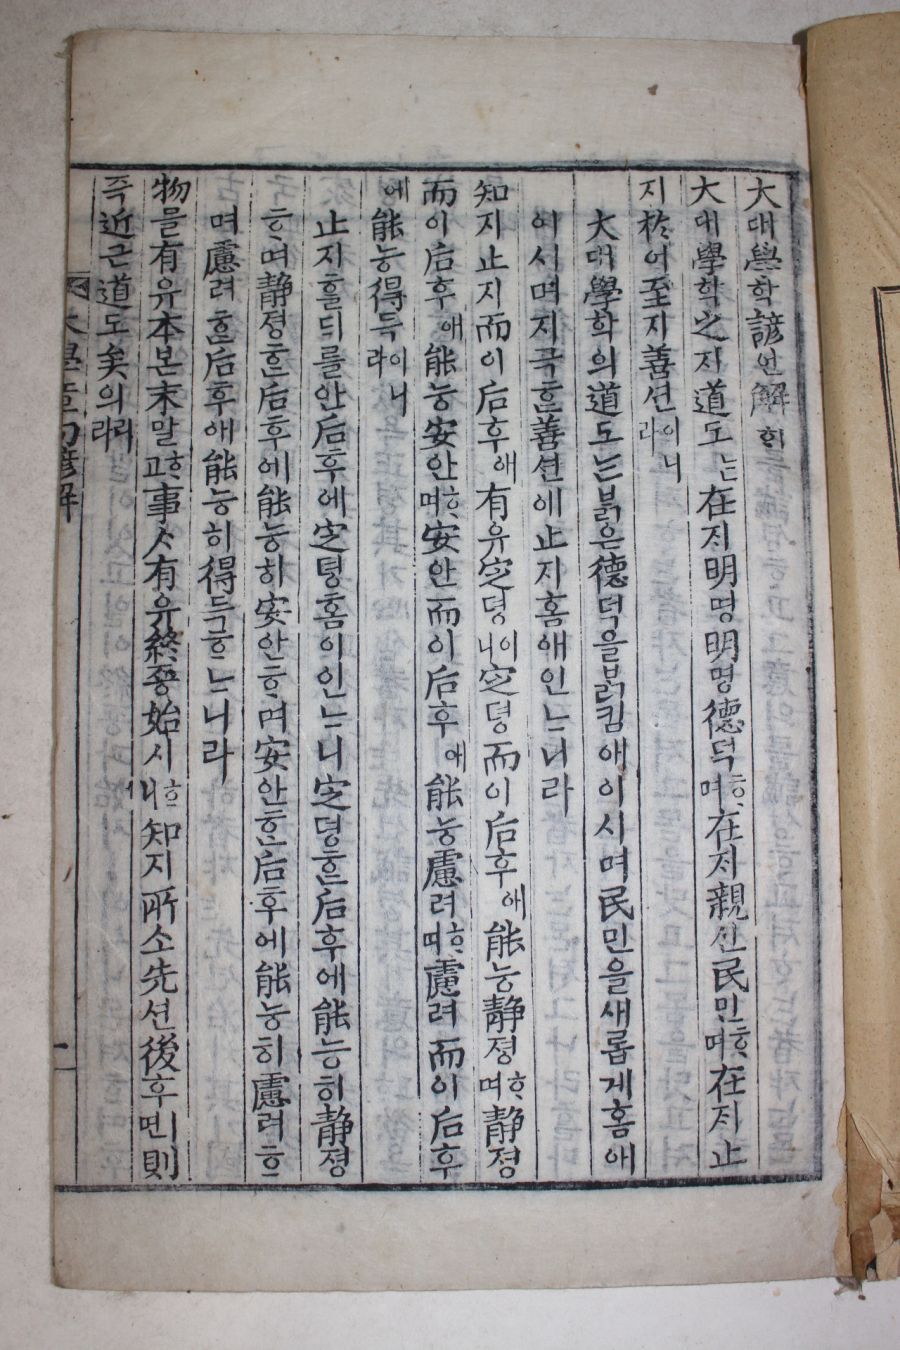 大대學학諺언解ᄒᆡ
大대學학之지道도ᄂᆞᆫ在ᄌᆡ明명明명德덕ᄒᆞ며在ᄌᆡ親신民민ᄒᆞ며在ᄌᆡ止
지於어至지善션이니라
大대學학의道도ᄂᆞᆫ붉은德덕을붉킴애이시며民민을새롭게홈애
이시며지극ᄒᆞᆫ善션에止지홈애인ᄂᆞ니라
知지止지而이后후애有유定뎡이니定뎡而이后후애能능靜졍ᄒᆞ며靜졍
而이后후애能능安안ᄒᆞ며安안而이后후애能능慮려ᄒᆞ며慮려而이后후
에能능得득이니라
止지ᄒᆞᆯ듸를안后후에定뎡홈이인ᄂᆞ니定뎡ᄒᆞᆫ后후에能능히靜졍
ᄒᆞ며靜졍ᄒᆞᆫ后후에能능히安안ᄒᆞ며安안ᄒᆞᆫ后후에能능히慮려ᄒᆞ
며慮려ᄒᆞᆫ后후애能능히得득ᄒᆞᄂᆞ니라
物믈有유本본末말ᄒᆞ고事ᄉᆞ有유終죵始시ᄒᆞ니知지所소先션後후면則
즉近근道도矣의리라
大學章句諺解
一